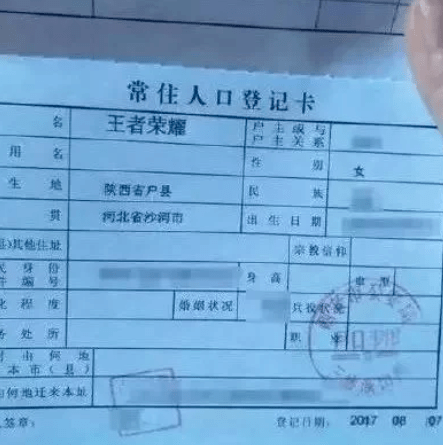 常住人口登记卡
名 王者荣耀 户主或与户主关系
用名 性别 女
生地 陕西省户县 民族
贯 河北省沙河市 出生日期
县)其他住址 宗教信仰
民身份件编号 身高 血型
化程度 婚姻状况 兵役状况
务处所 职业
由何地本市(县)
何地迁来本址
人签章: 登记日期: 2017 08 07